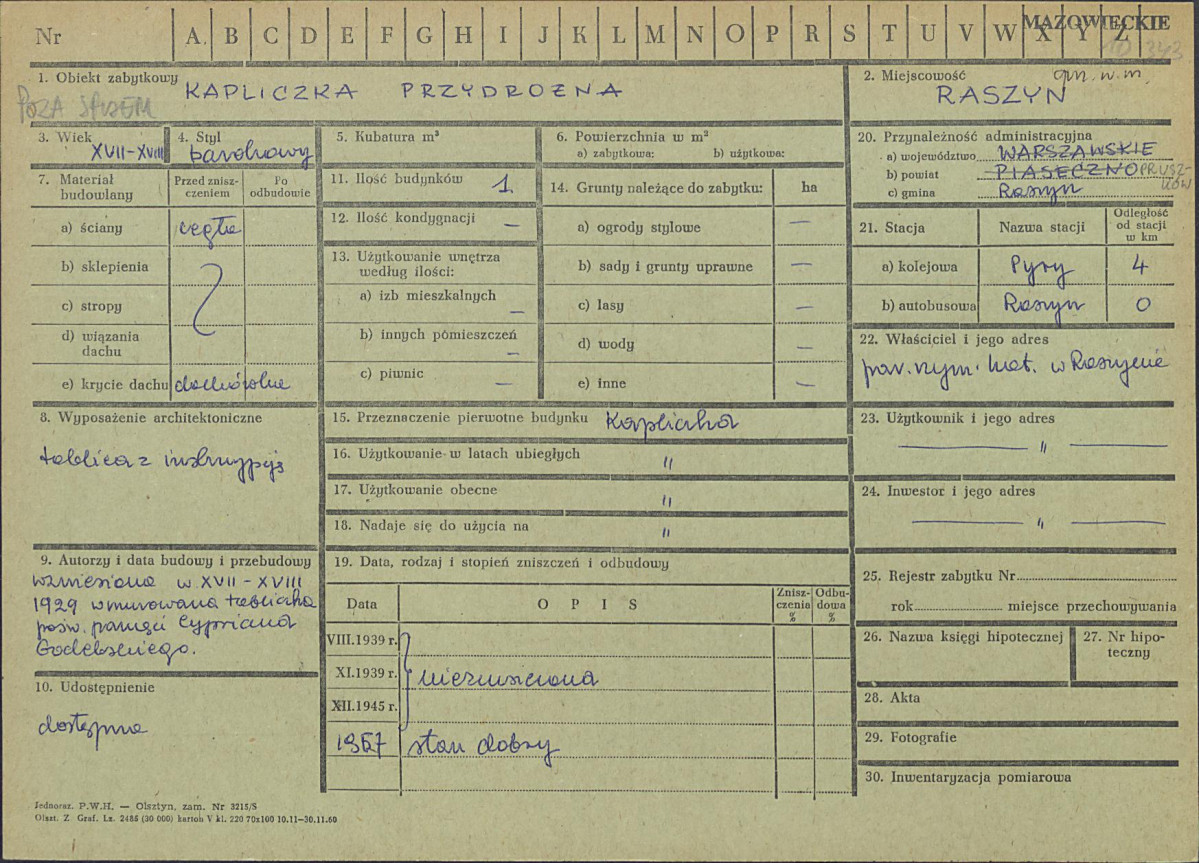 Nr A B C D E F G H I J K L M N O P R S T U V W X Y Z
MAZOWIECKIE
1. Obiekt zabytkowy KAPLICZKA PRZYDROŻNA
POZA SPISEM
2. Miejscowość gm. w. m.
RASZYN
3. Wiek
XVII-XVIII
4. Styl
barokowy
5. Kubatura m³
6. Powierzchnia w m²
a) zabytkowa: b) użytkowa:
20. Przynależność administracyjna
a) województwo WARSZAWSKIE
b) powiat PIASECZNO PRUSZ-
KÓW
c) gmina Raszyn
7. Materiał
budowlany
Przed znisz-
czeniem
Po
odbudowie
a) ściany cegła
b) sklepienia
c) stropy
d) wiązania
dachu
e) krycie dachu dachówka
11. Ilość budynków 1
12. Ilość kondygnacji —
13. Użytkowanie wnętrza
według ilości:
a) izb mieszkalnych —
b) innych pomieszczeń —
c) piwnic —
14. Grunty należące do zabytku: ha
a) ogrody stylowe —
b) sady i grunty uprawne —
c) lasy —
d) wody —
e) inne —
21. Stacja Nazwa stacji
Odległość
od stacji
w km
a) kolejowa Pyry 4
b) autobusowa Raszyn 0
22. Właściciel i jego adres
par. rzym. kat. w Raszynie
8. Wyposażenie architektoniczne
tablica z inskrypcją
15. Przeznaczenie pierwotne budynku Kapliczka
16. Użytkowanie w latach ubiegłych "
17. Użytkowanie obecne "
18. Nadaje się do użycia na "
23. Użytkownik i jego adres
— " —
24. Inwestor i jego adres
— " —
9. Autorzy i data budowy i przebudowy
wzniesiona w XVII-XVIII
1929 wmurowana tabliczka
pośw. pamięci Cypriana
Godebskiego.
10. Udostępnienie
dostępna
19. Data, rodzaj i stopień zniszczeń i odbudowy
Data OPIS
Znisz-
czenia
%
Odbu-
dowa
%
VIII.1939 r.
XI.1939 r. niezniszczona
XII.1945 r.
1967 stan dobry
25. Rejestr zabytku Nr
rok miejsce przechowywania
26. Nazwa księgi hipotecznej
27. Nr hipo-
teczny
28. Akta
29. Fotografie
30. Inwentaryzacja pomiarowa
Jednoraz. P.W.H. — Olsztyn, zam. Nr 3215/S
Olszt. Z Graf. Lz. 2485 (30 000) karton V kl. 220 70x100 10.11—30.11.60